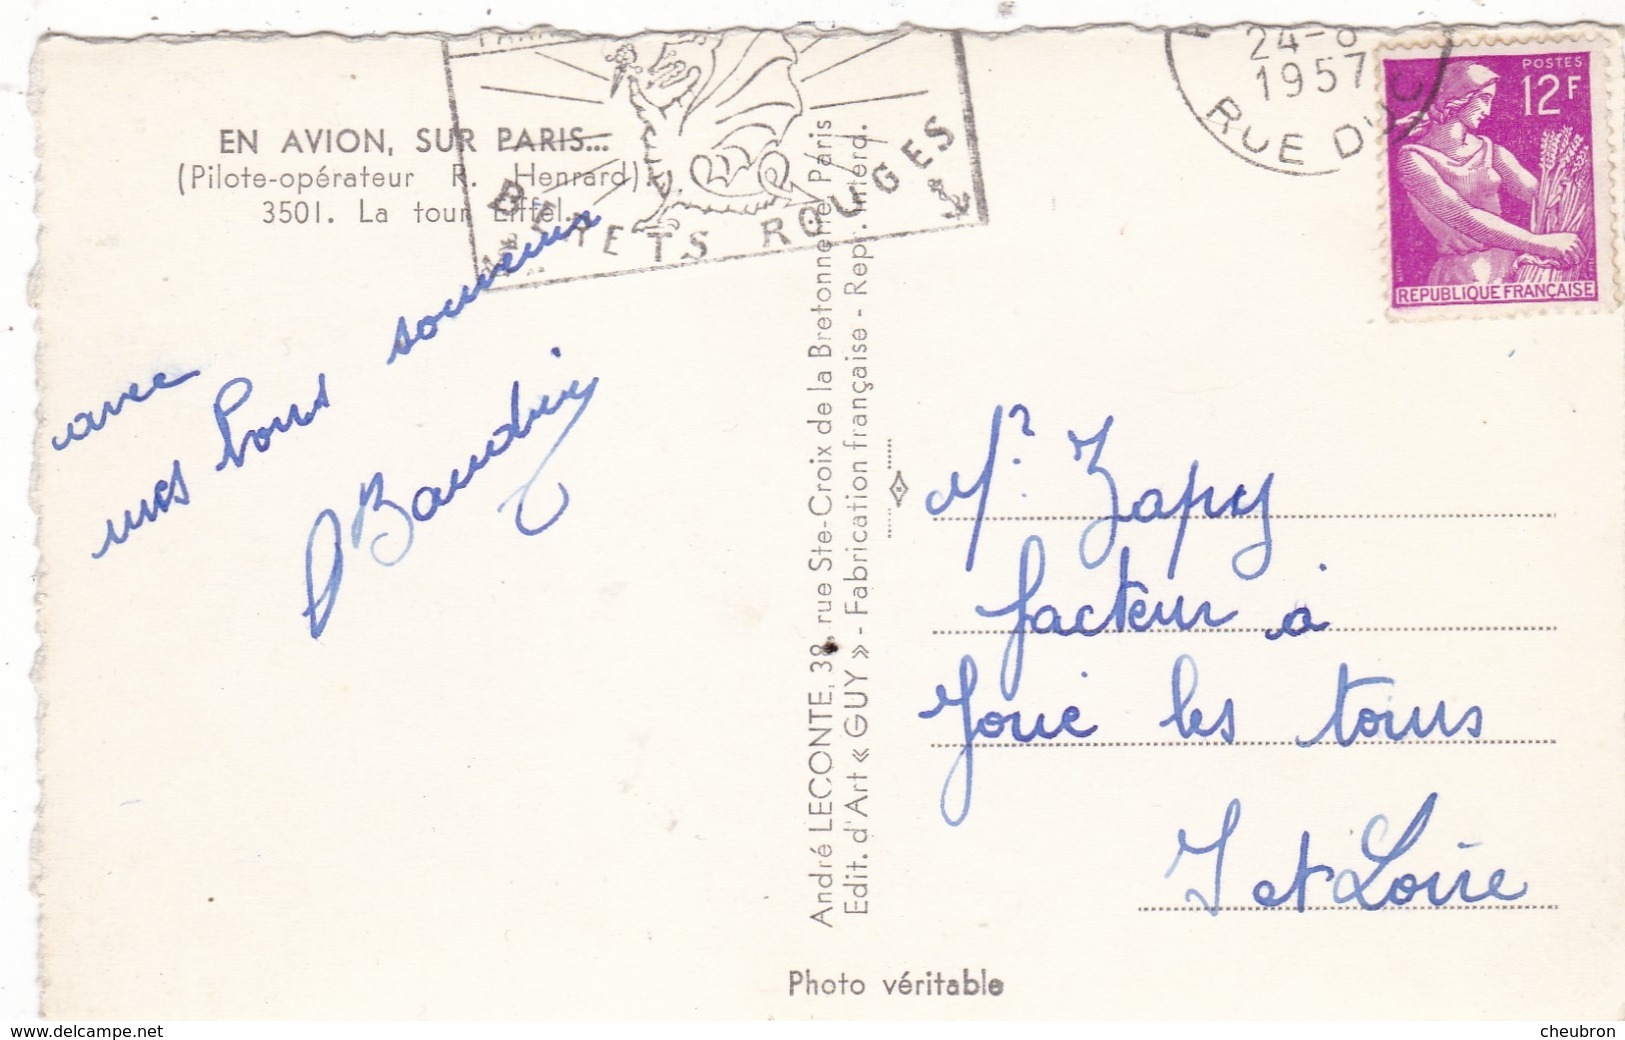 EN AVION, SUR PARIS...
(Pilote-opérateur R. Henrard).
3501. La tour Eiffel.
BÉRETS ROUGES
24-8
1957
RUE D
POSTES
12F
REPUBLIQUE FRANÇAISE
avec
mes bons souvenirs
Baudry
André LECONTE, 38, rue Ste-Croix de la Bretonnerie Paris
Edit. d'Art « GUY » - Fabrication française - Repr. interd.
Mr. Zapy
facteur à
Joué les tours
I et Loire
Photo véritable
www.delcampe.net
cheubron